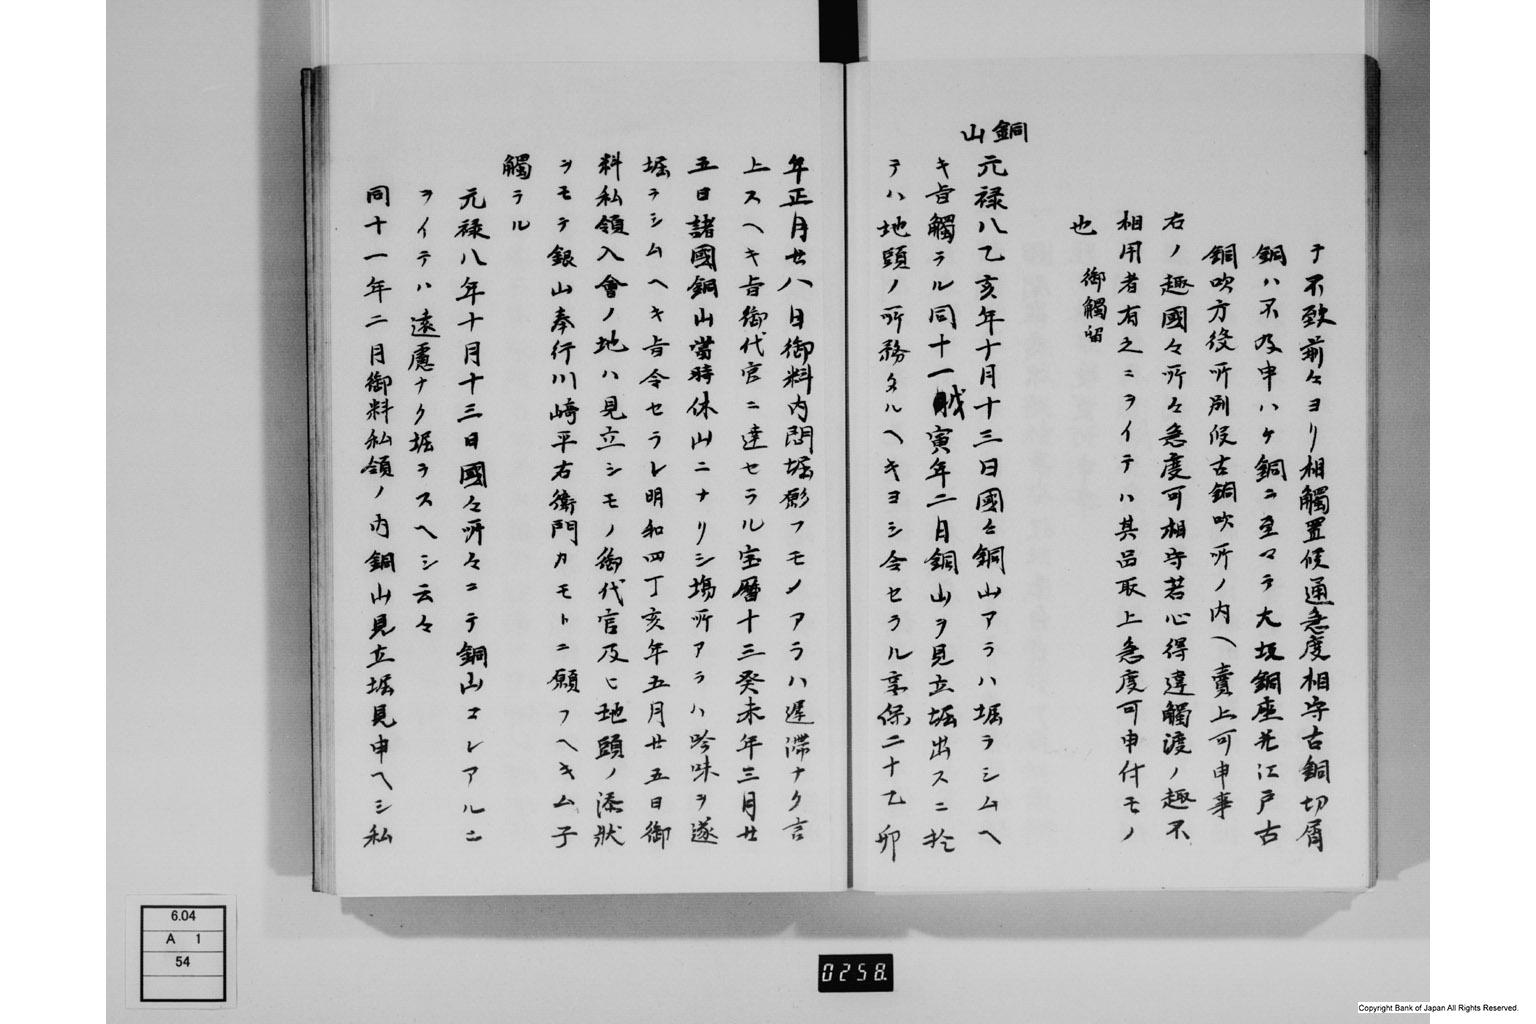 テ不致前々ヨリ相觸置候通急度相守古銅切屑
銅ハ不及申ハケ銅ニ至マテ大坂銅座并江戸古
銅吹方役所別段古銅吹所ノ内ヘ賣上可申事
右ノ趣國々所々急度可相守若心得違觸渡ノ趣不
相用者有之ニヲイテハ其品取上急度可申付モノ
也 御觸留
銅山
元禄八乙亥年十月十三日國々銅山アラハ堀ラシムヘ
キ旨觸ラル同十一寅年二月銅山ヲ見立堀出スニ於
テハ地頭ノ所務タルヘキヨシ令セラル享保二十乙卯
年正月廿八日御料内問堀願フモノアラハ遲滞ナク言
上スヘキ旨御代官ニ達セラル宝暦十三癸未年三月廿
五日諸國銅山當時休山ニナリシ場所アラハ吟味ヲ遂
堀ラシムヘキ旨令セラレ明和四丁亥年五月廿五日御
料私領入會ノ地ハ見立シモノ御代官及ヒ地頭ノ添状
ヲモテ銀山奉行川崎平右衛門カモトニ願フヘキム子
觸ラル
元禄八年十月十三日國々所々ニテ銅山コレアルニ
ヲイテハ遠慮ナク堀ラスヘシ云々
同十一年二月御料私領ノ内銅山見立堀見申ヘシ私
6.04
A 1
54
0258.
Copyright Bank of Japan All Rights Reserved.